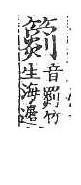 音罽竹
生海邊